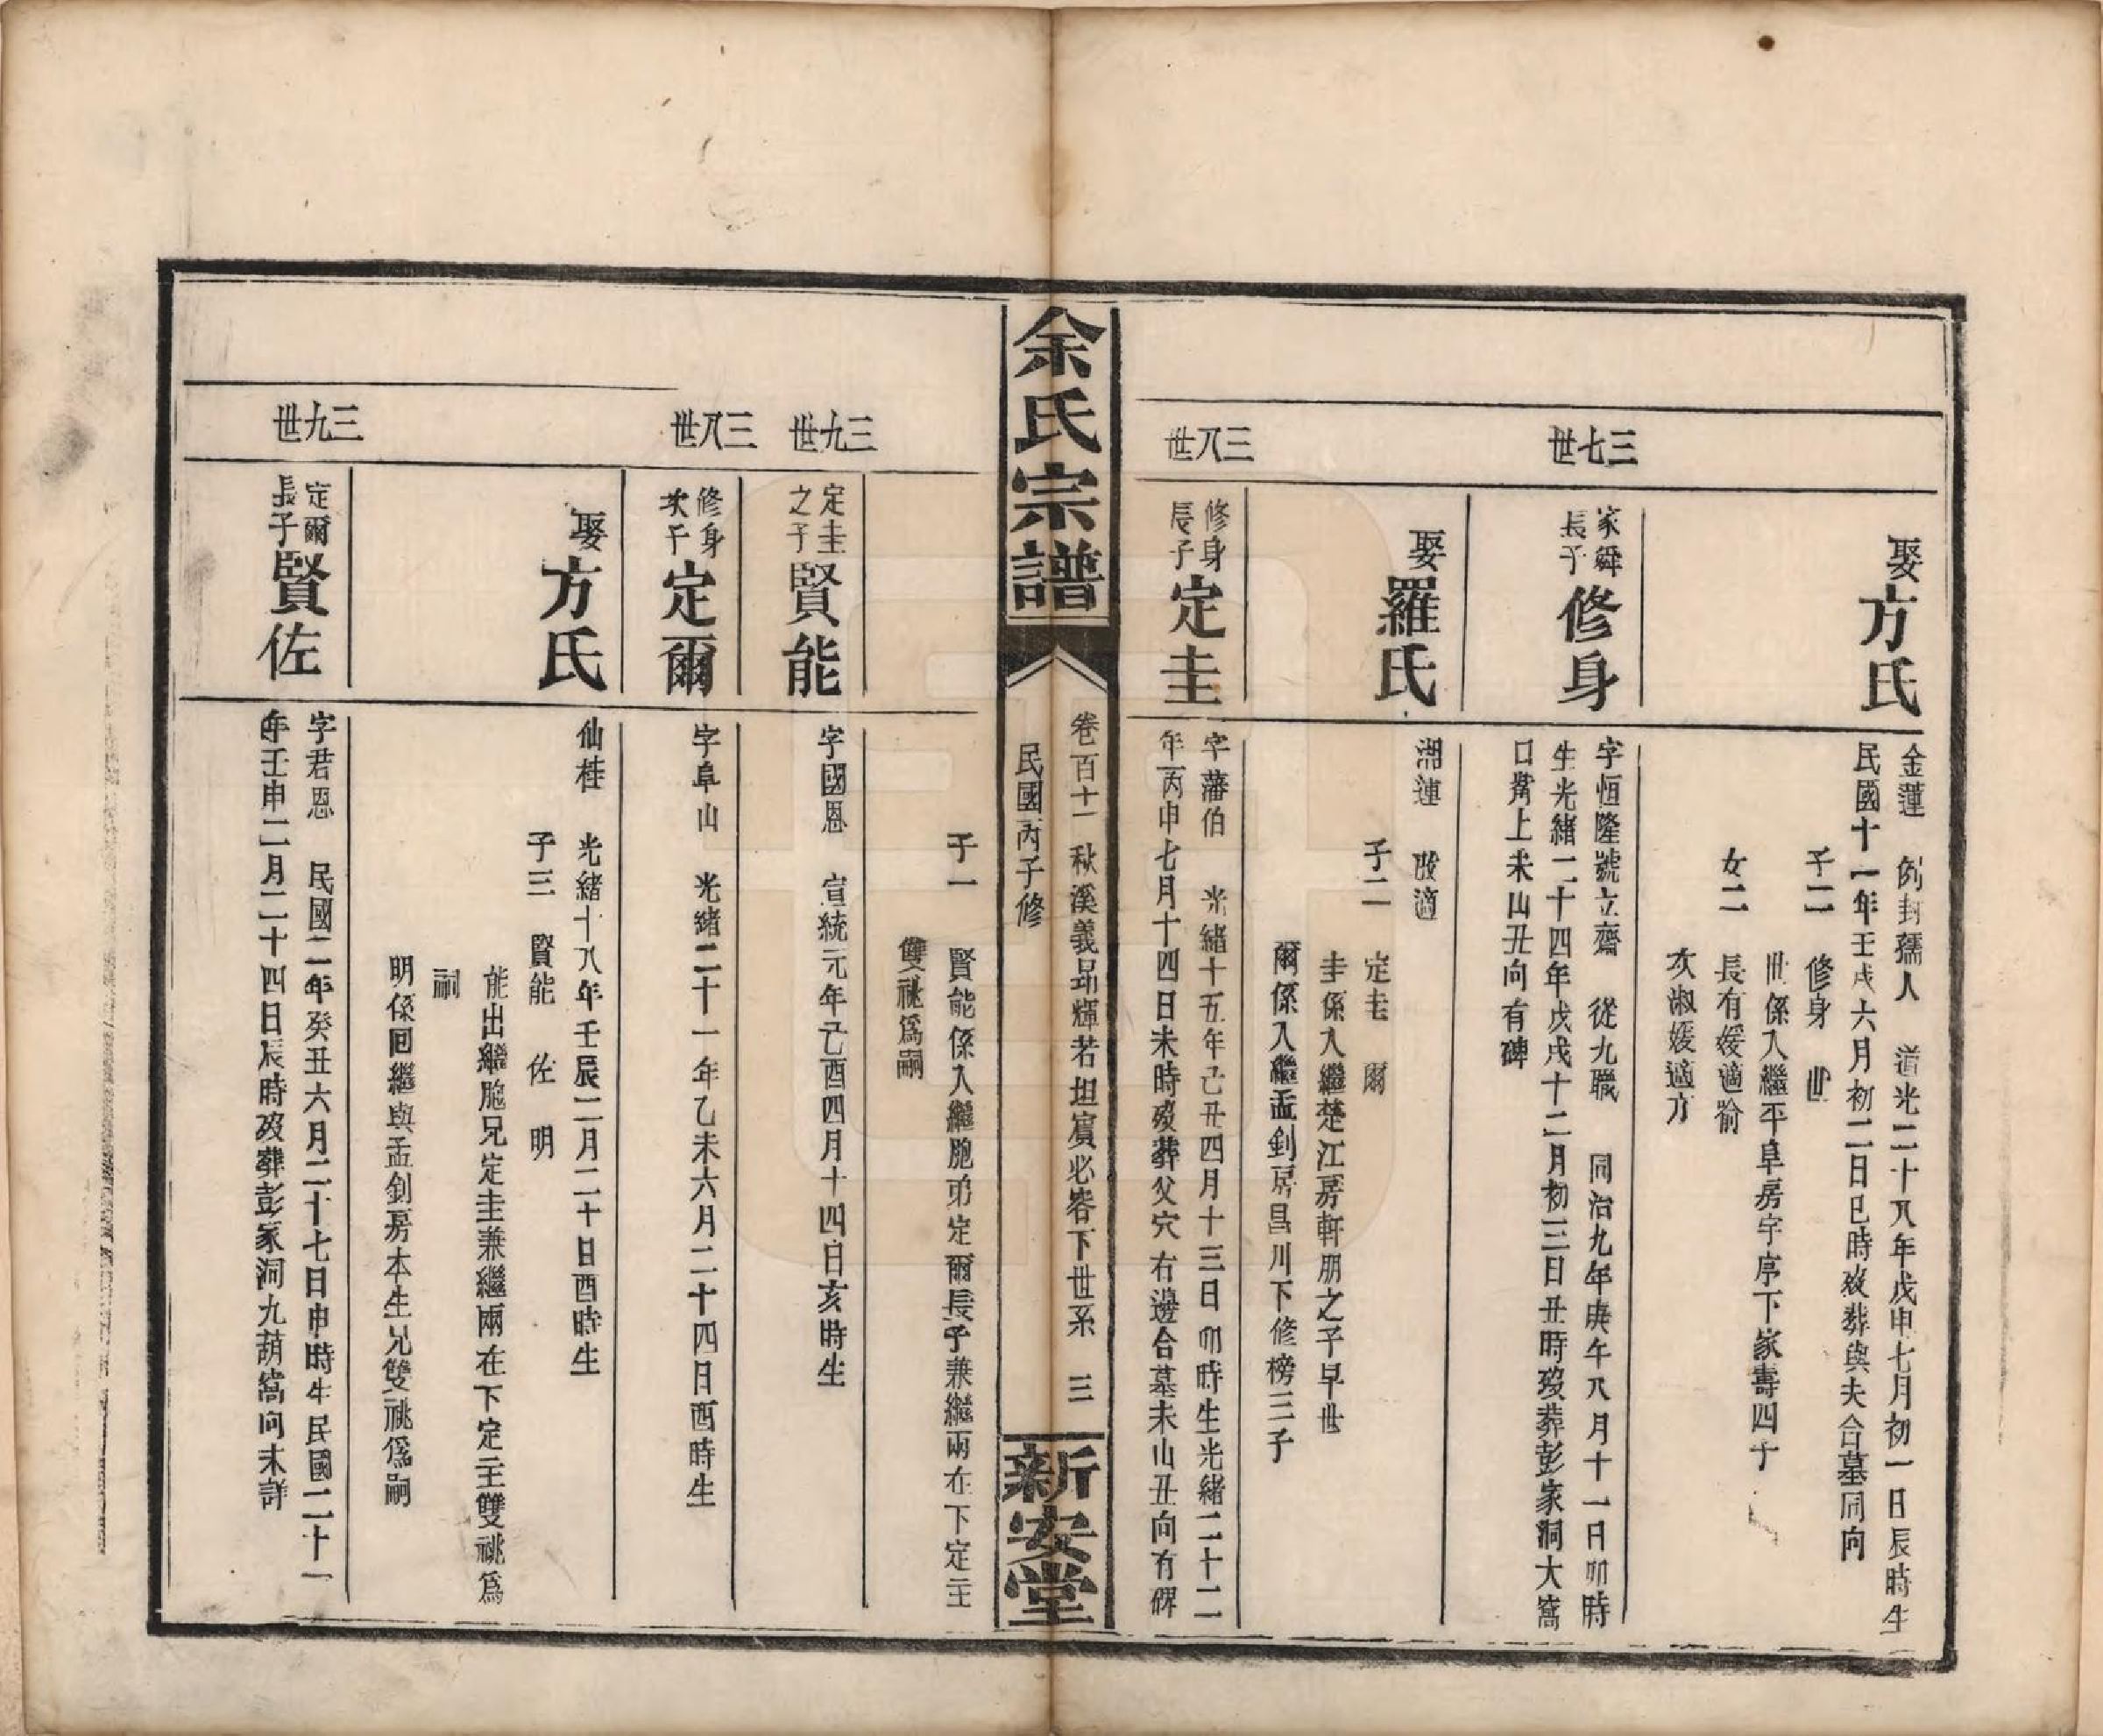 娶方氏
金蓮　例封孺人　道光二十八年戊申七月初一日辰時生
民國十一年壬戌六月初二日巳時歿葬與夫合墓同向
子二　修身　世
世係入繼平阜房字序下家壽四子
女二　長有媛適喻
次淑媛適方
三七世
家舜
長子
修身
字恒隆號立齋　從九職　同治九年庚午八月十一日卯時
生光緒二十四年戊戌十二月初三日丑時歿葬彭家洞大窩
口嘴上未山丑向有碑
娶羅氏
湖蓮　改適
子二　定圭　爾
圭係入繼楚江房軒朋之子早世
爾係入繼孟釗房昌川下修榜三子
三八世
修身
長子
定圭
字藩伯　光緒十五年己丑四月十三日卯時生光緒二十二
年丙申七月十四日未時歿葬父穴右邊合墓未山丑向有碑
余氏宗譜
卷百十一　秋溪義昂輝若坦賔必容下世系　三
民國丙子修
新安堂
子一　賢能係入繼胞弟定爾長子兼繼兩在下定圭
雙祧爲嗣
三九世
定圭
之子
賢能
字國恩　宣統元年己酉四月十四日亥時生
三八世
修身
次子
定爾
字阜山　光緒二十一年乙未六月二十四日酉時生
娶方氏
仙桂　光緒十八年壬辰二月二十日酉時生
子三　賢能　佐　明
能出繼胞兄定圭兼繼兩在下定圭雙祧爲
嗣
明係囘繼與孟釗房本生兄雙祧爲嗣
三九世
定爾
長子
賢佐
字君恩　民國二年癸丑六月二十七日申時生民國二十一
年壬申二月二十四日辰時歿葬彭家洞九葫窩向未詳